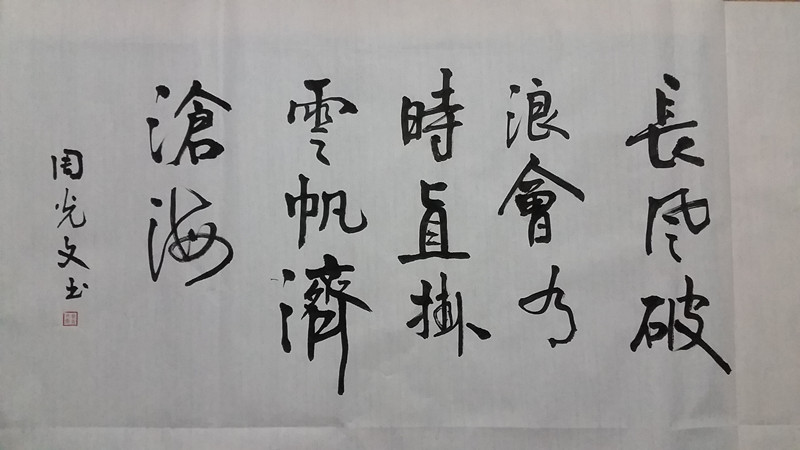 長风破
浪會有
時直掛
雲帆濟
滄海
周光文书